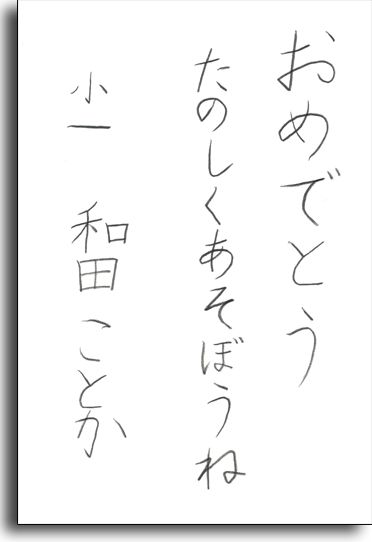 おめでとう
たのしくあそぼうね
小一 和田ことか